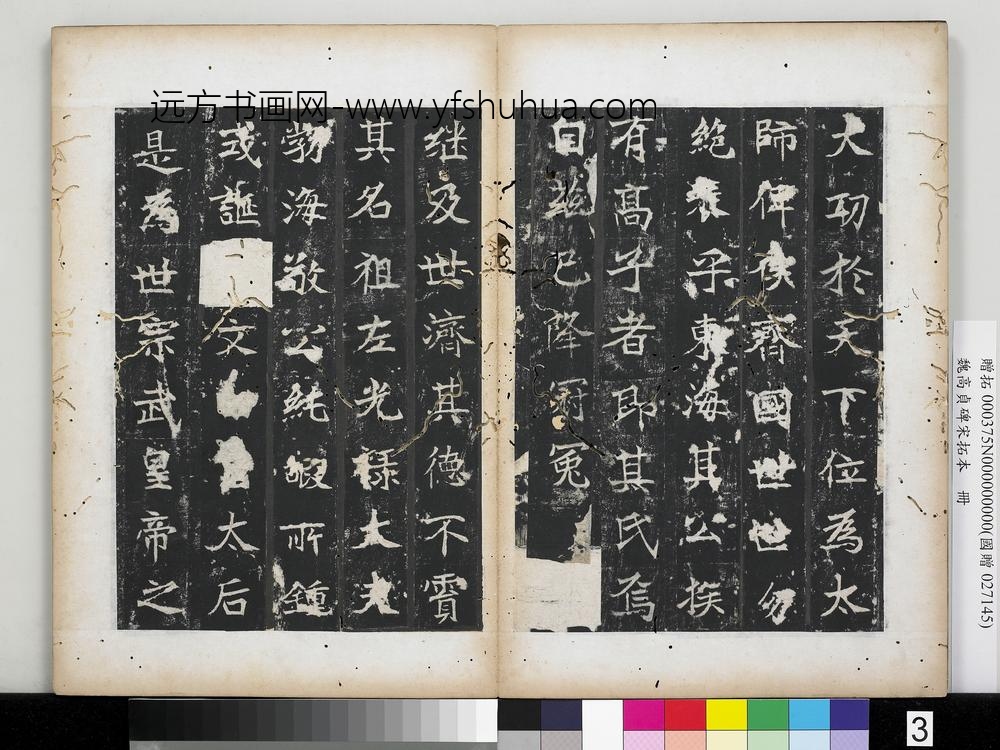 远方书画网-www.yfshuhua.com
大功於天下位為太
師俾侯齊國世世勿
絕表乎東海其公族
有高子者即其氏焉
自茲已降冠冕
继及世濟其德不霣
其名祖左光祿大夫
勃海敬公純嘏所鍾
或誕 文 太后
是為世宗武皇帝之
贈拓 000375N000000000(國贈 027145)
魏高貞碑宋拓本 冊
3